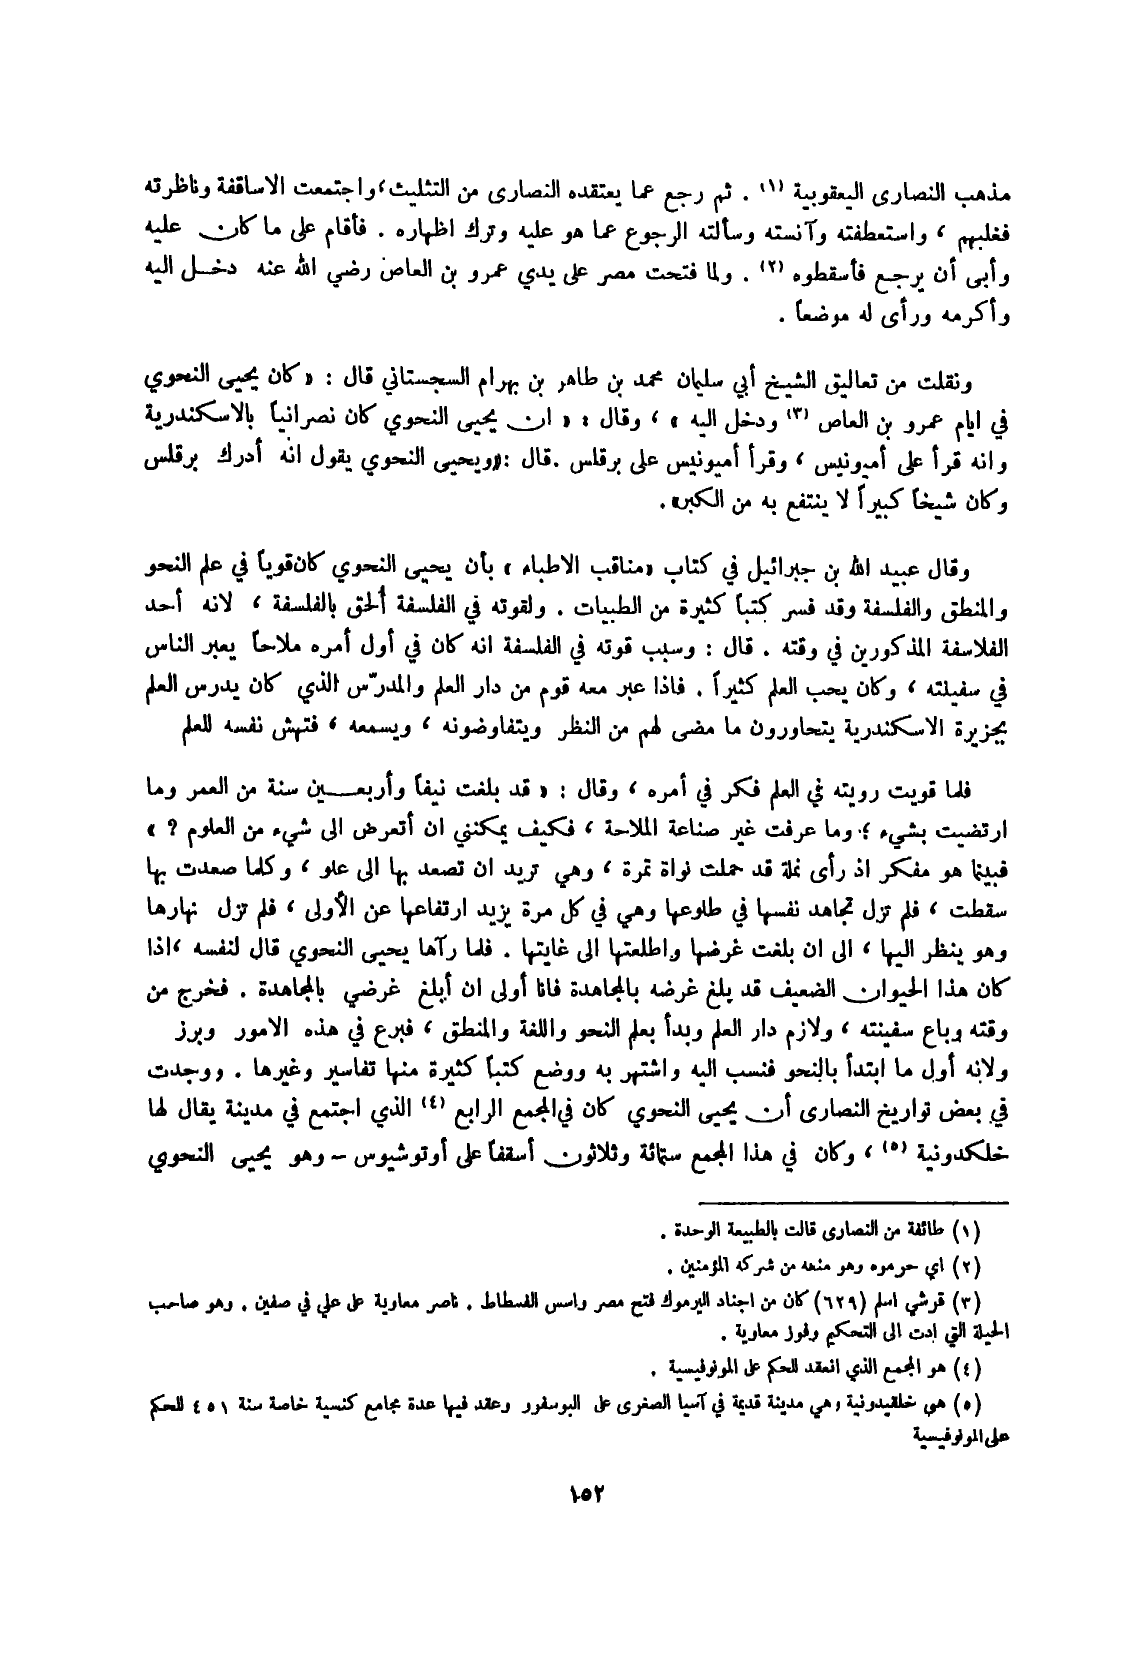 مذهب النصارى اليعقوبية (١) . ثم رجع عما يعتقده النصارى من التثليث، واجتمعت الاساقفة وناظرته
فغلبهم ، واستعطفته وآنسته وسألته الرجوع عما هو عليه وترك اظهاره . فأقام على ما كان عليه
وأبى أن يرجع فأسقطوه (٢) . ولما فتحت مصر على يدي عمرو بن العاص رضي الله عنه دخل اليه
وأكرمه ورأى له موضعاً .
ونقلت من تعاليق الشيخ أبي سليمان محمد بن طاهر بن بهرام السجستاني قال : « كان يحيى النحوي
في ايام عمرو بن العاص (٣) ودخل اليه » ، وقال : « ان يحيى النحوي كان نصرانياً بالاسكندرية
وانه قرأ على أميونيس ، وقرأ أميونيس على برقلس .قال :«ويحيى النحوي يقول انه أدرك برقلس
وكان شيخاً كبيراً لا ينتفع به من الكبر» .
وقال عبيد الله بن جبرائيل في كتاب «مناقب الاطباء » بأن يحيى النحوي كان قوياً في علم النحو
والمنطق والفلسفة وقد فسر كتباً كثيرة من الطبيات . ولقوته في الفلسفة ألحق بالفلسفة ، لانه أحد
الفلاسفة المذكورين في وقته . قال : وسبب قوته في الفلسفة انه كان في أول أمره ملاحاً يعبر الناس
في سفينته ، وكان يحب العلم كثيراً . فاذا عبر معه قوم من دار العلم والمدرّس الذي كان يدرس العلم
بجزيرة الاسكندرية يتحاورون ما مضى لهم من النظر ويتفاوضونه ، ويسمعه ، فتهش نفسه للعلم
فلما قويت رويته في العلم فكر في أمره ، وقال : « قد بلغت نيفاً وأربعين سنة من العمر وما
ارتضيت بشيء ؛ وما عرفت غير صناعة الملاحة ، فكيف يمكنني ان أتعرض الى شيء من العلوم ? »
فبينما هو مفكر اذ رأى نملة قد حملت نواة تمرة ، وهي تريد ان تصعد بها الى علو ، وكلما صعدت بها
سقطت ، فلم تزل تجاهد نفسها في طلوعها وهي في كل مرة يزيد ارتفاعها عن الأولى ، فلم تزل نهارها
وهو ينظر اليها ، الى ان بلغت غرضها واطلعتها الى غايتها . فلما رآها يحيى النحوي قال لنفسه ،اذا
كان هذا الحيوان الضعيف قد بلغ غرضه بالمجاهدة فانا أولى ان أبلغ غرضي بالمجاهدة . فخرج من
وقته وباع سفينته ، ولازم دار العلم وبدأ بعلم النحو واللغة والمنطق ، فبرع في هذه الامور وبرز
ولانه أول ما ابتدأ بالنحو فنسب اليه واشتهر به ووضع كتباً كثيرة منها تفاسير وغيرها . ووجدت
في بعض تواريخ النصارى أن يحيى النحوي كان في المجمع الرابع (٤) الذي اجتمع في مدينة يقال لها
خلكدونية (٥) ، وكان في هذا المجمع ستمائة وثلاثون أسقفاً على أوتوشيوس – وهو يحيى النحوي
(١) طائفة من النصارى قالت بالطبيعة الوحدة .
(٢) اي حرموه وهو منعه من شركة المؤمنين .
(٣) قرشي اسلم (٦٢٩) كان من اجناد اليرموك فتح مصر واسس الفسطاط . ناصر معاوية على علي في صفين . وهو صاحب
الحيلة التي ادت الى التحكيم وفوز معاوية .
(٤) هو المجمع الذي انعقد للحكم على المونوفيسية .
(٥) هي خلقيدونية وهي مدينة قديمة في آسيا الصغرى على البوسفور وعقد فيها عدة مجامع كنسية خاصة سنة ٤٥١ للحكم
على المونوفيسية
١٥٢